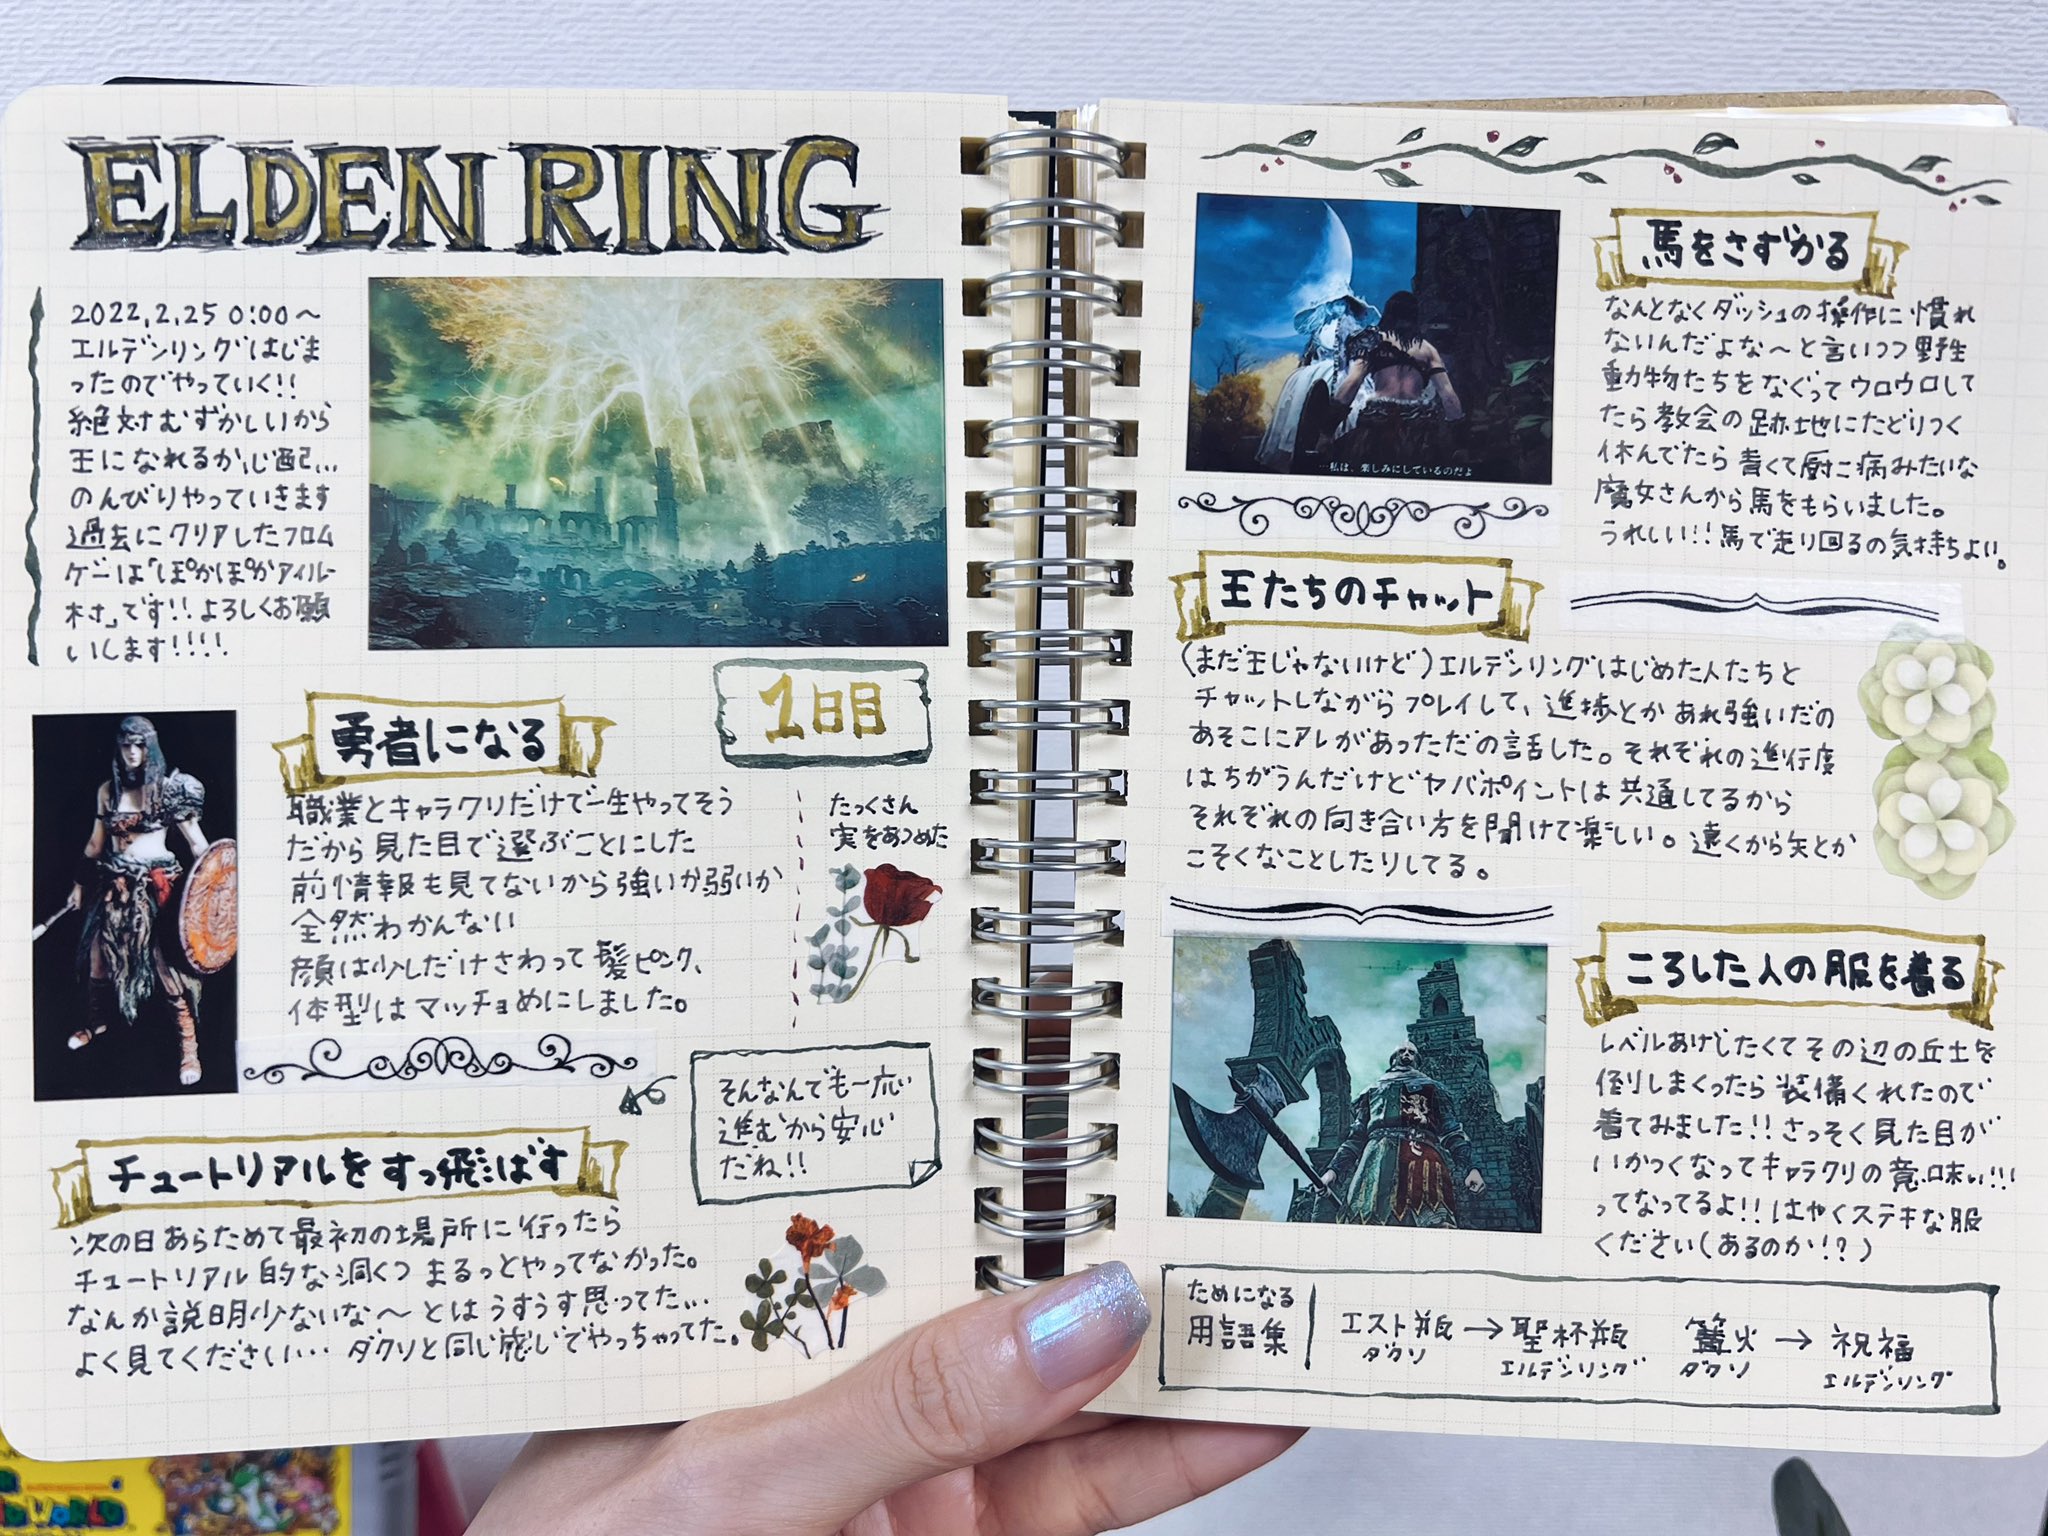 ELDEN RING
2022.2.25 0:00〜
エルデンリングはじま
ったのでやっていく!!
絶対むずかしいから
王になれるか心配...
のんびりやっていきます
過去にクリアしたフロム
ゲーは「ぽかぽかアイルー
村」です!!よろしくお願
いします!!!!
1日目
勇者になる
職業とキャラクリだけで一生やってそう
だから見た目で選ぶことにした
前情報も見てないから強いか弱いか
全然わかんない
顔は少しだけさわって髪ピンク、
体型はマッチョめにしました。
たっくさん
実をあつめた
そんなんでも一応
進むから安心
だね!!
チュートリアルをすっ飛ばす
次の日あらためて最初の場所に行ったら
チュートリアル的な洞くつまるっとやってなかった。
なんか説明少ないな〜とはうすうす思ってた...
よく見てください… ダクソと同じ感じでやっちゃってた。
…私は、楽しみにしているのだよ
馬をさずかる
なんとなくダッシュの操作に慣れ
ないんだよな〜と言いつつ野生
動物たちをなぐってウロウロして
たら教会の跡地にたどりつく
休んでたら青くて厨二病みたいな
魔女さんから馬をもらいました。
うれしい!!馬で走り回るの気持ちよい。
王たちのチャット
(まだ王じゃないけど)エルデンリングはじめた人たちと
チャットしながらプレイして、進捗とかあれ強いだの
あそこにアレがあっただの話した。それぞれの進行度
はちがうんだけどヤバポイントは共通してるから
それぞれの向き合い方を聞けて楽しい。遠くから矢とか
こそくなことしたりしてる。
ころした人の服を着る
レベルあげしたくてその辺の兵士を
倒しまくったら装備くれたので
着てみました!!さっそく見た目が
いかつくなってキャラクリの意味ぃ!!!
ってなってるよ!!はやくステキな服
ください(あるのか!?)
ためになる
用語集
エスト瓶→聖杯瓶 篝火→祝福
ダクソ エルデンリング ダクソ エルデンリング
WORLD